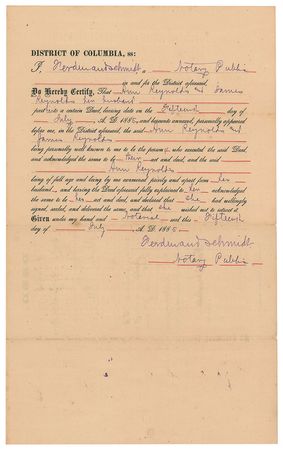 DISTRICT OF COLUMBIA, ss:
I, Ferdinand Schmidt, a Notary Public
in and for the District aforesaid,
Do Hereby Certify, That Ann Reynolds and James
Reynolds her husband
part to a certain Deed, bearing date on the Fifteenth day of
July A. D. 188 , and hereunto annexed, personally appeared
before me, in the District aforesaid, the said Ann Reynolds and
James Reynolds
being personally well known to me to be the person s who executed the said Deed,
and acknowledged the same to be their act and deed, and the said
Ann Reynolds
being of full age and being by me examined privily and apart from her
husband, and having the Deed aforesaid fully explained to her acknowledged
the same to be her act and deed, and declared that she had willingly
signed, sealed, and delivered the same, and that she wished not to retract it.
Given under my hand and Notarial seal this Fifteenth
day of July A. D. 188
Ferdinand Schmidt
Notary Public